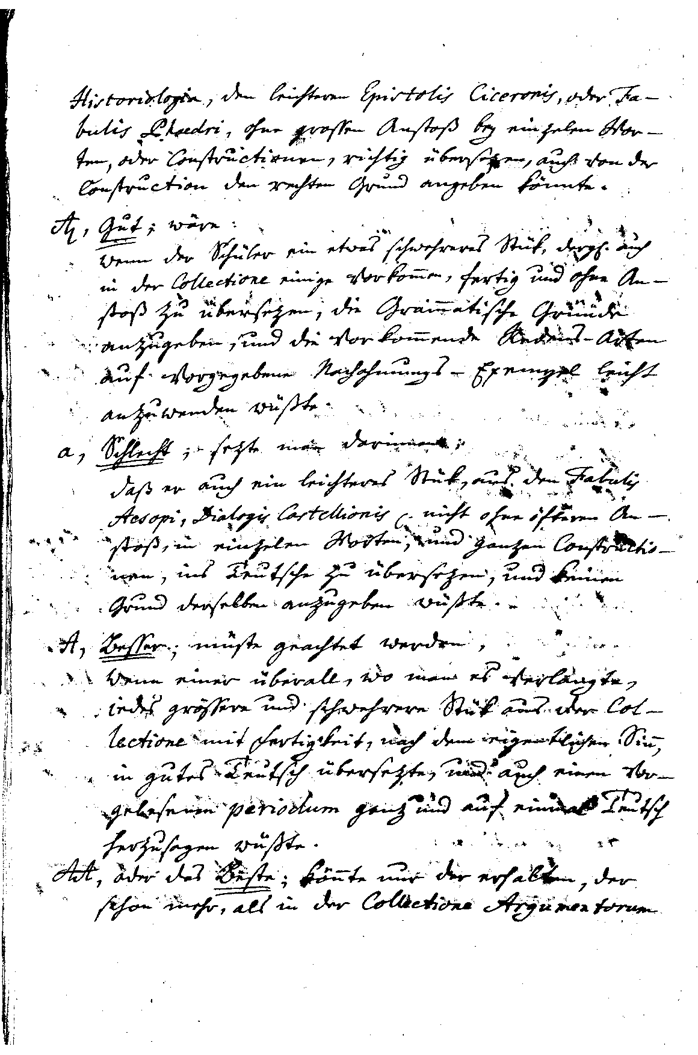 Historiologia, den leichteren Epistolis Ciceronis, oder Fa-
bulis Phædri, ohne grossen Anstoß bey einzelen Wor-
ten, oder Constructionen, richtig übersetzen, auch von der
Construction den rechten Grund angeben könnte.
Gut; wäre:
wenn der Schüler ein etwas schwehreres Stük, dergl. auch
in der Collectione einige vorkommen, fertig und ohne An-
stoß zu übersetzen, die Grammatische Gründe
anzugeben, und die vorkommende Redens-Arten
auf vorgegebene Nachahmungs-Exempel leicht
anzuwenden wüßte.
a, Schlecht; setzte man darinnen;
daß er auch ein leichteres Stük, aus den Fabulis
Aesopi, Dialogis Castellionis nicht ohne öfteren An-
stoß, in einzelen Worten, und ganzen Constructio-
nen, ins Teutsche zu übersetzen, und keinen
Grund derselben anzugeben wüßte.
A, Besser; müste geachtet werden,
wenn einer überall, wo man es verlangte,
jedes grössere und schwehrere Stük aus der Col-
lectione mit Fertigkeit, nach dem eigentlichen Sinn,
in gutes Teutsch übersetzte, und auch einen vor-
gelesenen periodum ganz und auf einmal Teutsch
herzusagen wüßte.
AA, oder das Beste; könnte nur der erhalten, der
schon mehr, als in der Collectione Argumentorum